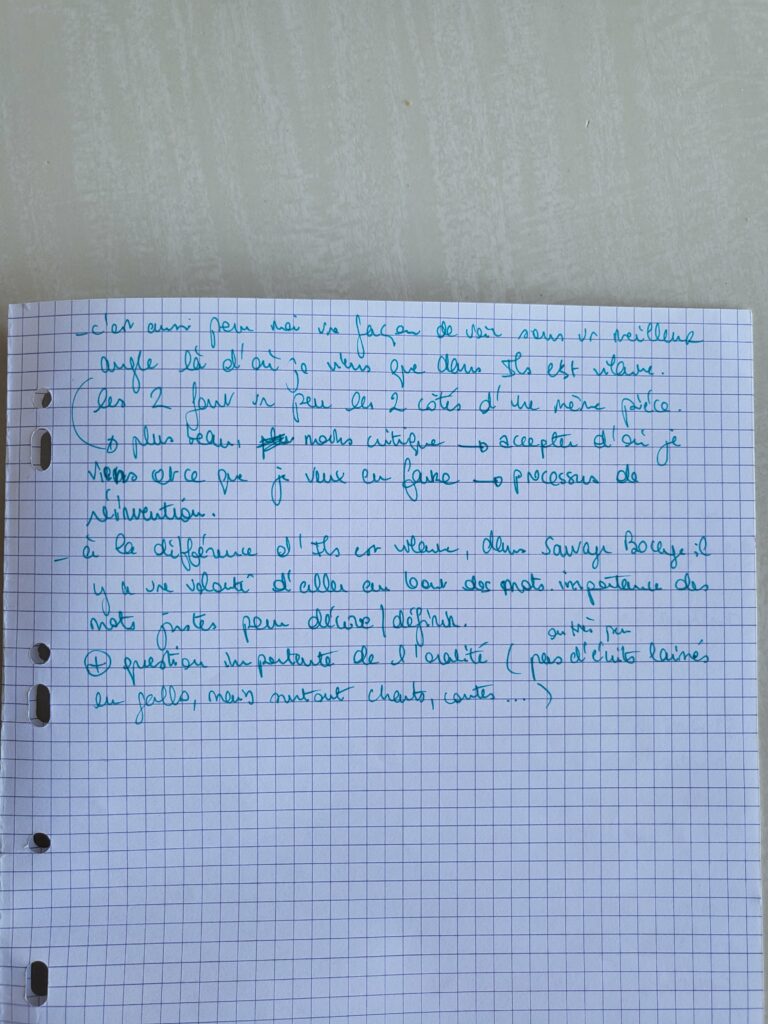 - c'est aussi pour moi une façon de voir sous un meilleur
angle là d'où je viens que dans Ils est vilaine.
les 2 font un peu les 2 côtés d'une même pièce.
→ plus beau, moins critique → accepter d'où je
viens et ce que je veux en faire → processus de
réinvention.
- à la différence d'Ils est vilaine, dans Sauvage Bocage il
y a une volonté d'aller au bout des mots. importance des
mots justes pour décrire/définir.
ou très peu
⊕ question importante de l'oralité (pas d'écrits laissés
en gallo, mais surtout chants, contes...)